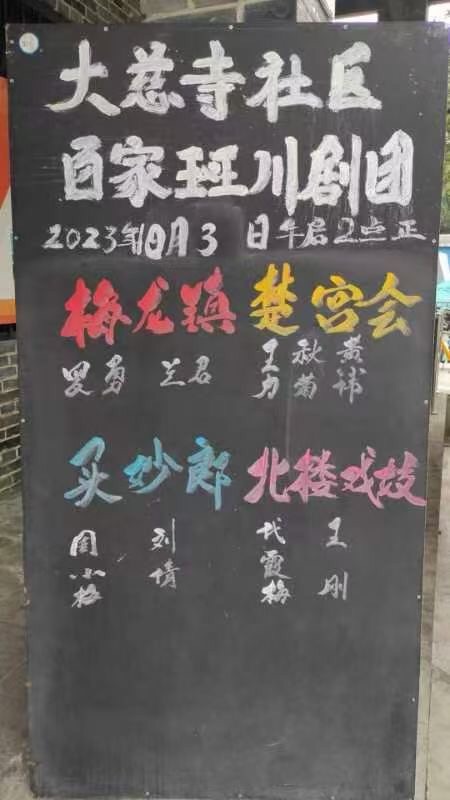 大慈寺社区
百家班川剧团
2023年10月3日午后2点正
梅龙镇 楚宫会
罗勇 兰君 王力 秋菊 黄祎
买妙郎 北楼戏妓
周小梅 刘倩 代霞梅 王刚